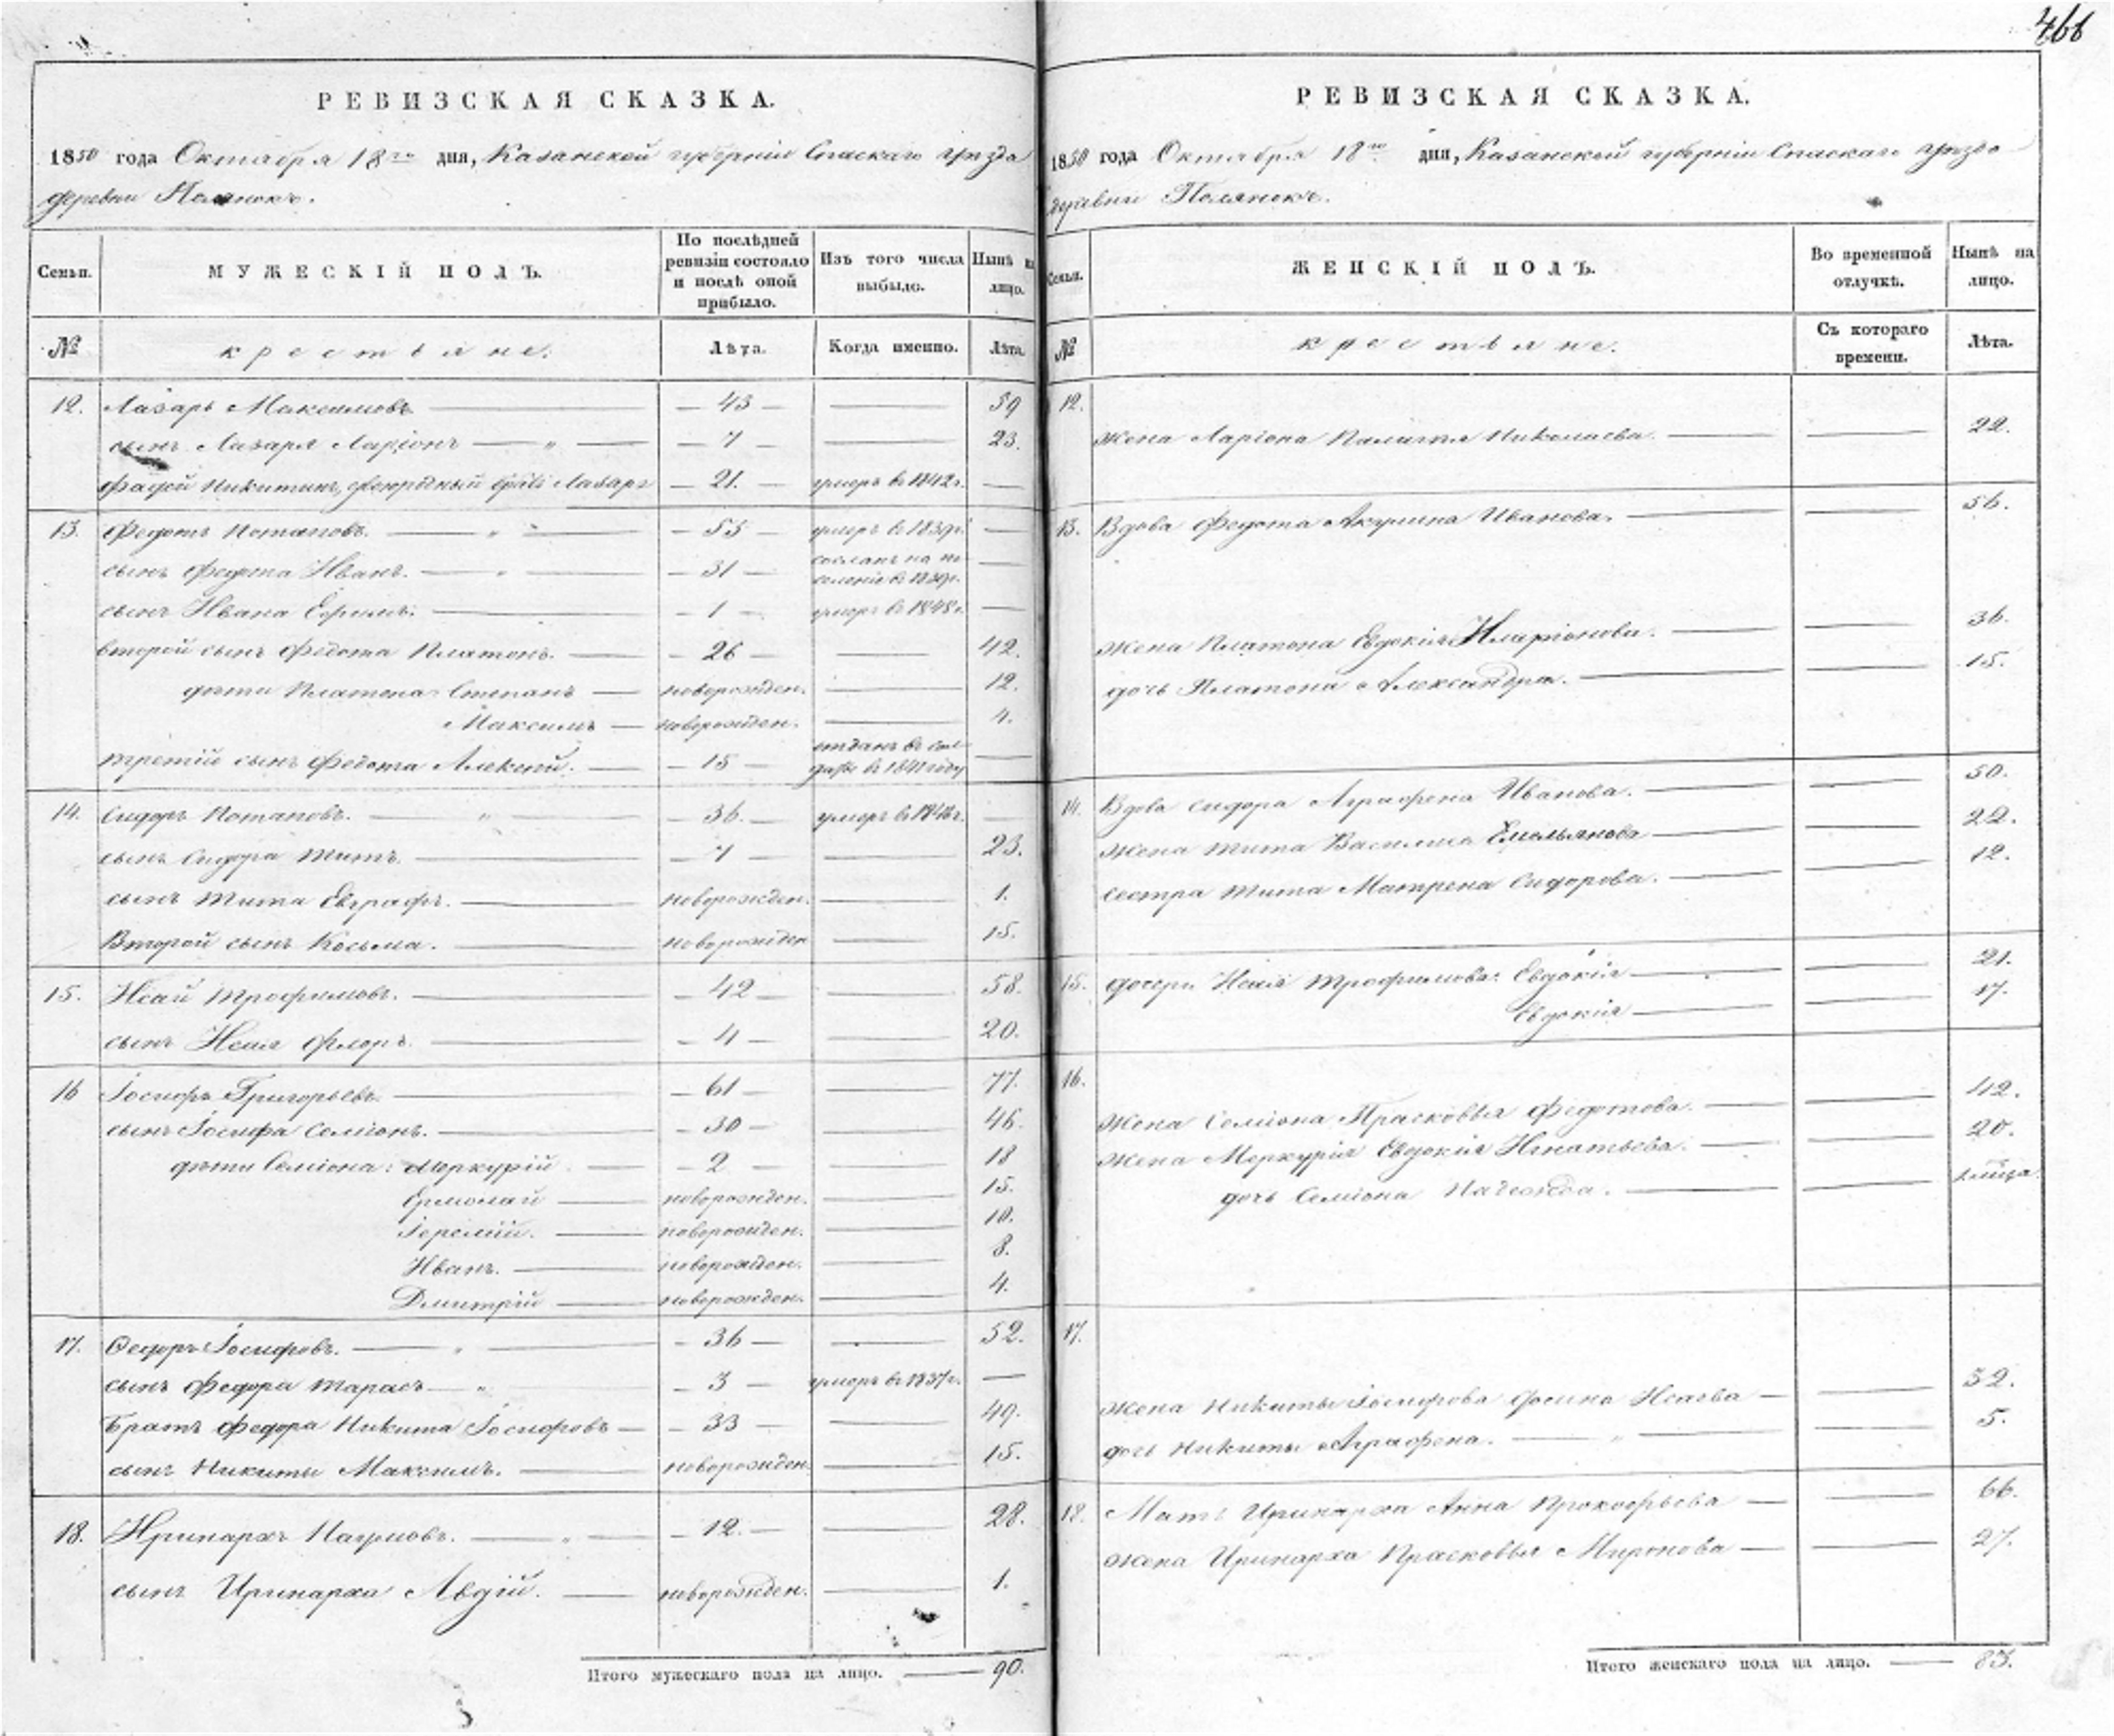 466
РЕВИЗСКАЯ СКАЗКА.
1850 года Октября 18го дня, Казанской губернiи Спаскаго уѣзда
деревни Полянокъ.
Семьи.
МУЖЕСКIЙ ПОЛЪ.
По послѣдней
ревизiи состояло
и послѣ оной
прибыло.
Изъ того числа
выбыло.
Нынѣ на
лицо.
№
крестьяне.
Лѣта.
Когда именно.
Лѣта.
12. Лазарь Максимовъ — 43 — 59
сынъ Лазаря Ларiонъ — 7 — 23.
Фадей Никитинъ, двоюродный братъ Лазаря — 21. — умеръ въ 1842 г. —
13. Федотъ Потаповъ. — 53 — умеръ въ 1839 г. —
сынъ Федота Иванъ. — 31 — сосланъ на по-
селенiе въ 1839 г. —
сынъ Ивана Ефимъ. — 1 — умеръ въ 1848 г. —
второй сынъ Федота Платонъ. — 26 — 42.
дѣти Платона: Степанъ — новорожден. — 12.
Максимъ — новорожден. — 4.
третiй сынъ Федота Алексѣй. — 15 — отданъ въ сол-
даты въ 1841 году —
14. Сидоръ Потаповъ. — 36. — умеръ въ —
сынъ Сидора Титъ. — 7 — 23.
сынъ Тита Евграфъ. — новорожден. — 1.
Второй сынъ Косьма. — новорожден — 15.
15. Исай Трофимовъ. — 42 — 58.
сынъ Исая Флоръ. — 4 — 20.
16 Iосифъ Григорьевъ. — 61 — 77.
сынъ Iосифа Семiонъ. — 30 — 46.
дѣти Семiона: Меркурiй — 2 — 18
Ермолай — новорожден. — 15.
Iеремiй. — новорожден. — 10.
Иванъ. — новорожден. — 8.
Дмитрiй — новорожден. — 4.
17. Федоръ Iосифовъ. — 36 — 52.
сынъ Федора Тарасъ — 3 — умеръ въ 1837 г. —
Братъ Федора Никита Iосифовъ — 33 — 49.
сынъ Никиты Максимъ. — новорожден. — 15.
18. Иринархъ Наумовъ. — 12. — 28.
сынъ Иринарха Авдiй. — новорожден. — 1.
Итого мужескаго пола на лицо. — 90.
РЕВИЗСКАЯ СКАЗКА.
1850 года Октября 18го дня, Казанской губернiи Спаскаго уѣзда
деревни Полянокъ.
Семьи.
ЖЕНСКIЙ ПОЛЪ.
Во временной
отлучкѣ.
Нынѣ на
лицо.
№
крестьяне.
Съ котораго
времени.
Лѣта.
12.
жена Ларiона Палагея Николаева. — 22.
13. Вдова Федота Акулина Иванова. — 56.
жена Платона Евдокiя Иларiонова. — 36.
дочь Платона Александра. — 15.
14. Вдова Сидора Аграфена Иванова. — 50.
жена Тита Василиса Емельянова — 22.
сестра Тита Матрена Сидорова. — 12.
15. дочери Исая Трофимова: Евдокiя — 21.
Евдокiя — 17.
16.
жена Семiона Прасковья Федотова. — 42.
жена Меркурiя Евдокiя Игнатьева. — 20.
дочь Семiона Надежда. —
17.
жена Никиты Iосифова Фоsина Исаева — 32.
дочь Никиты Аграфена. — 5.
18. Мать Иринарха Анна Прокофьева — 66.
жена Иринарха Прасковья Миронова — 27.
Итого женскаго пола на лицо. — 83.